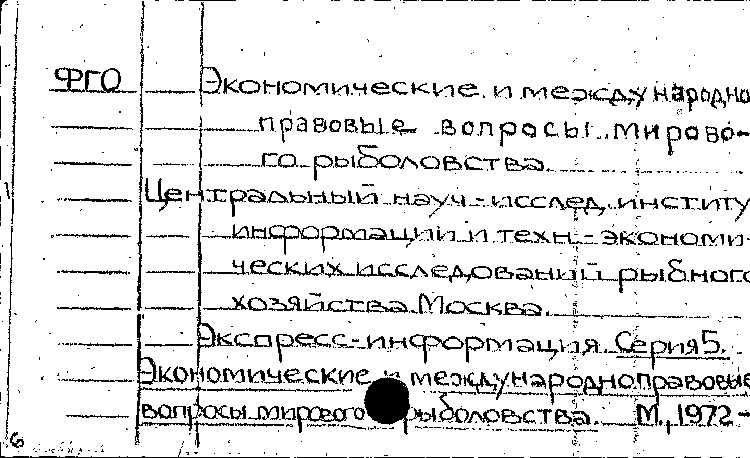 ФГО Экономические и международно
правовые вопросы мирово-
го рыболовства.
Центральный науч.-исслед. институ
информации и техн.-экономи-
ческих исследований рыбного
хозяйства. Москва.
Экспресс-информация. Серия 5.
Экономические и международноправовые
вопросы мирового рыболовства. М., 1972-
6